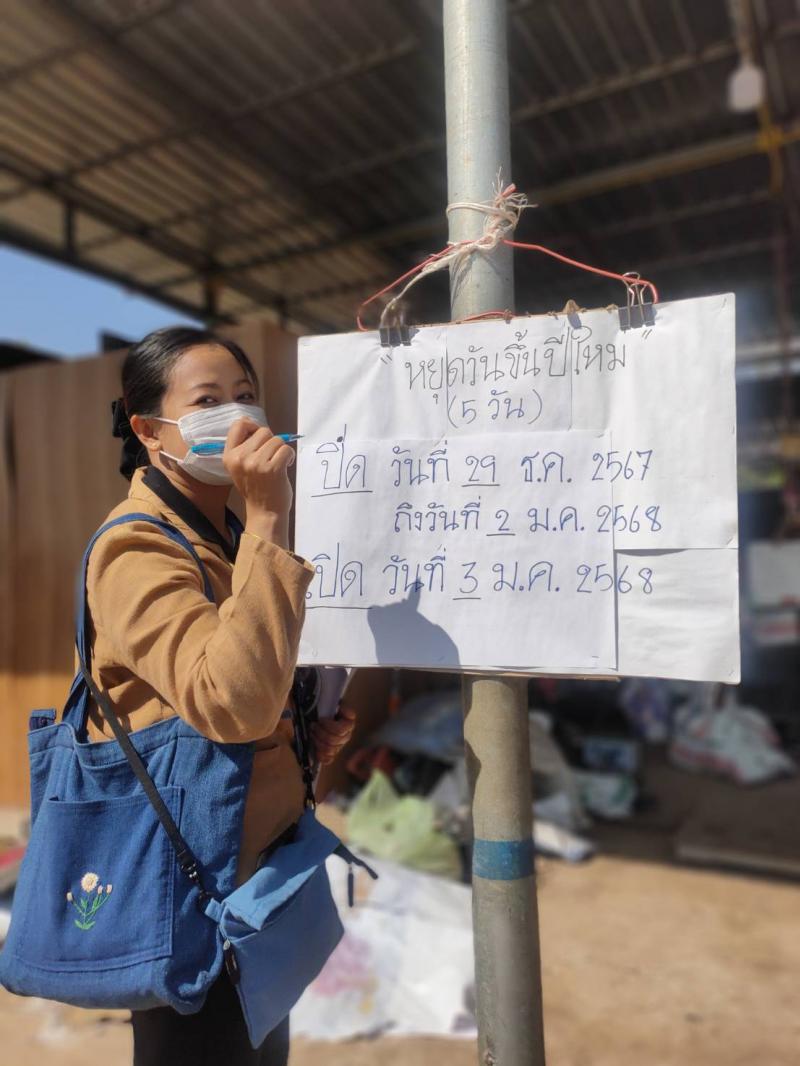 " หยุดวันขึ้นปีใหม่ "
(5 วัน)
ปิด วันที่ 29 ธ.ค. 2567
ถึงวันที่ 2 ม.ค. 2568
เปิด วันที่ 3 ม.ค. 2568